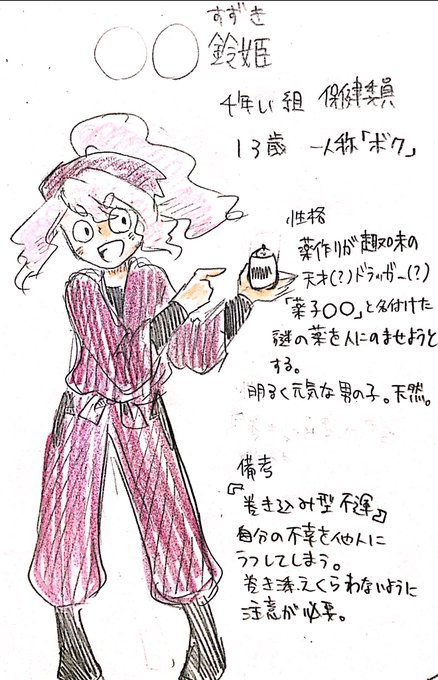 すずき
○○ 鈴姫
4年い組 保健委員
13歳 一人称「ボク」
性格
薬作りが趣味の
天才(?)ドラッガー(?)
「薬子○○」と名付けた
謎の薬を人にのませようと
する。
明るく元気な男の子。天然。
備考
『巻き込み型不運』
自分の不幸を他人に
うつしてしまう。
巻き添えくらわないように
注意が必要。